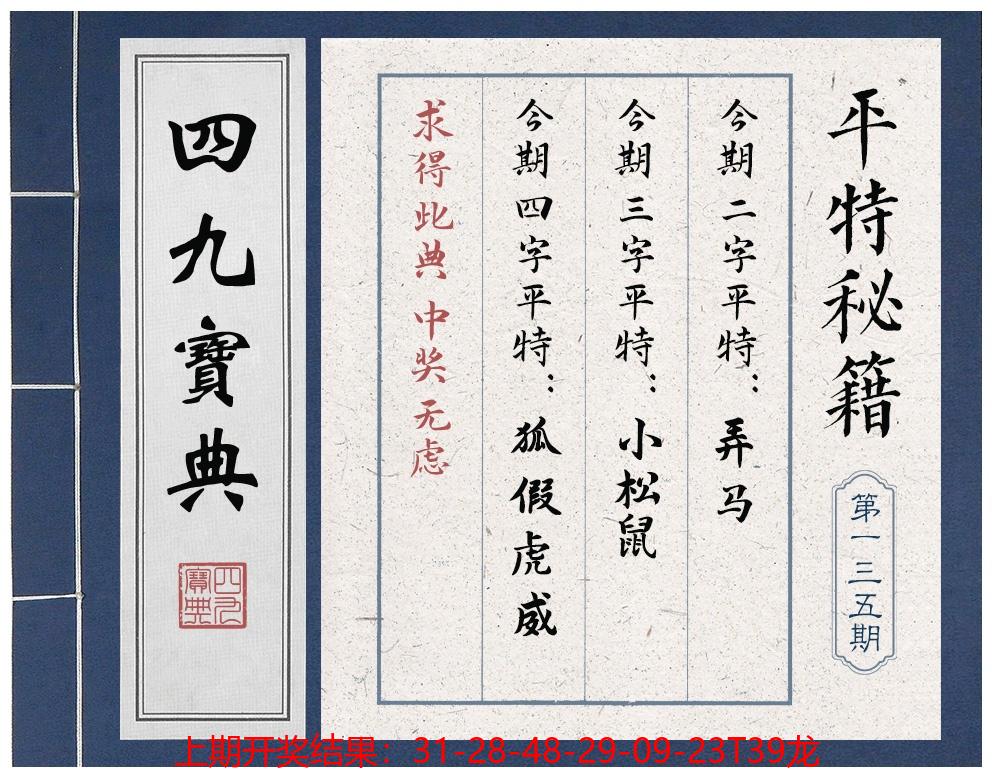 平特秘籍
第一三五期
今期二字平特：弄马
今期三字平特：小松鼠
今期四字平特：狐假虎威
求得此典 中奖无虑
四九寶典
四九寶典
上期开奖结果：31-28-48-29-09-23T39龙